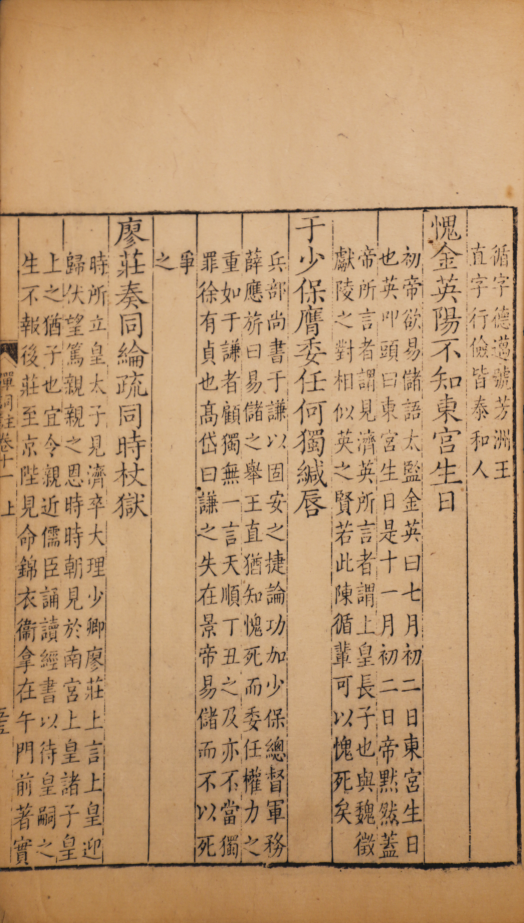 循字德遵號芳洲王
直字行儉皆泰和人
愧金英陽不知東宮生日
初帝欲易儲語太監金英曰七月初二日東宮生日
也英叩頭曰東宮生日是十一月初二日帝黙然蓋
帝所言者謂見濟英所言者謂上皇長子也與魏徵
獻陵之對相似英之賢若此陳循輩可以愧死矣
于少保膺委任何獨緘唇
兵部尚書于謙以固安之捷論功加少保總督軍務
薛應旂曰易儲之舉王直猶知愧死而委任權力之
重如于謙者顧獨無一言天順丁丑之及亦不當獨
罪徐有貞也高岱曰謙之失在景帝易儲而不以死
爭之
廖莊奏同綸疏同時杖獄
時所立皇太子見濟卒大理少卿廖莊上言上皇迎
歸伏望篤親親之恩時時朝見於南宮上皇諸子皇
上之猶子也宜令親近儒臣誦讀經書以待皇嗣之
生不報後莊至京陛見命錦衣衞拿在午門前著實
彈詞註卷十一 上